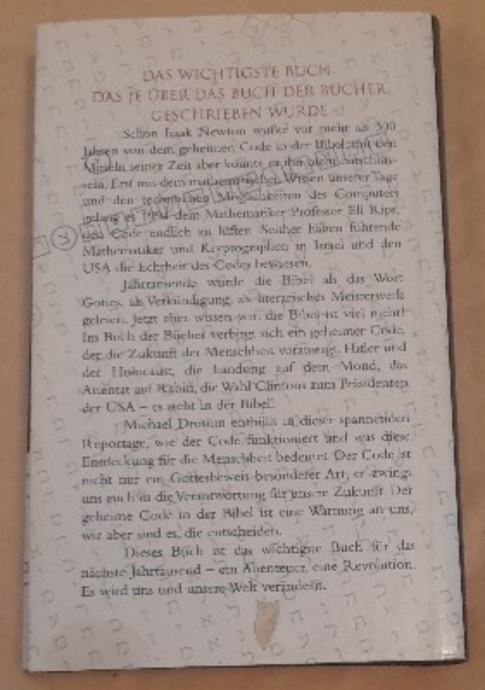 DAS WICHTIGSTE BUCH
DAS JE ÜBER DAS BUCH DER BÜCHER
GESCHRIEBEN WURDE
Schon Isaak Newton wußte vor mehr als 300
Jahren von dem geheimen Code in der Bibel, mit den
Mitteln seiner Zeit aber konnte er ihn nicht entschlüs-
seln. Erst mit dem mathematischen Wissen unserer Tage
und den technischen Möglichkeiten des Computers
gelang es 1994 dem Mathematiker Professor Eli Rips,
den Code endlich zu lüften. Seither haben führende
Mathematiker und Kryptographen in Israel und den
USA die Echtheit des Codes bewiesen.
Jahrtausende wurde die Bibel als das Wort
Gottes, als Verkündigung, als literarisches Meisterwerk
gelesen. Jetzt aber wissen wir: die Bibel ist viel mehr!
Im Buch der Bücher verbirgt sich ein geheimer Code,
der die Zukunft der Menschheit voraussagt. Hitler und
der Holocaust, die Landung auf dem Mond, das
Attentat auf Rabin, die Wahl Clintons zum Präsidenten
der USA – es steht in der Bibel!
Michael Drosnin enthüllt in dieser spannenden
Reportage, wie der Code funktioniert und was diese
Entdeckung für die Menschheit bedeutet. Der Code ist
nicht nur ein Gottesbeweis besonderer Art, er zwingt
uns auch in die Verantwortung für unsere Zukunft. Der
geheime Code in der Bibel ist eine Warnung an uns,
wir aber sind es, die entscheiden.
Dieses Buch ist das wichtigste Buch für das
nächste Jahrtausend – ein Abenteuer, eine Revolution.
Es wird uns und unsere Welt verändern.